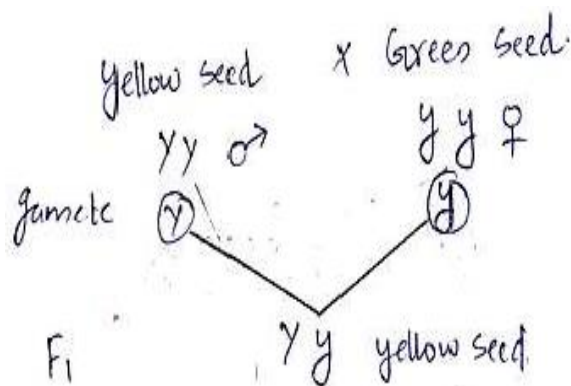 Yellow seed x Green seed.
YY ♂ yy ♀
gamete Y y
F1 Yy yellow seed.